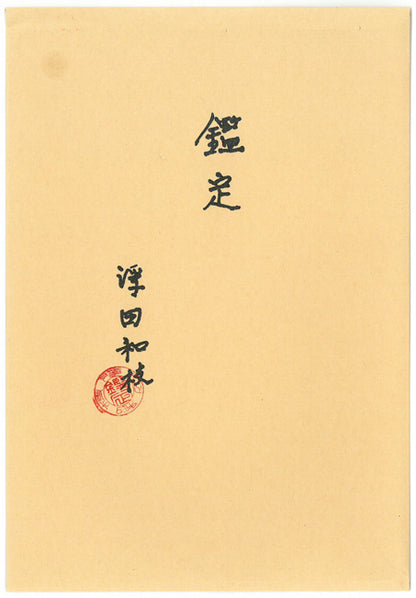 鑑定
浮田和枝